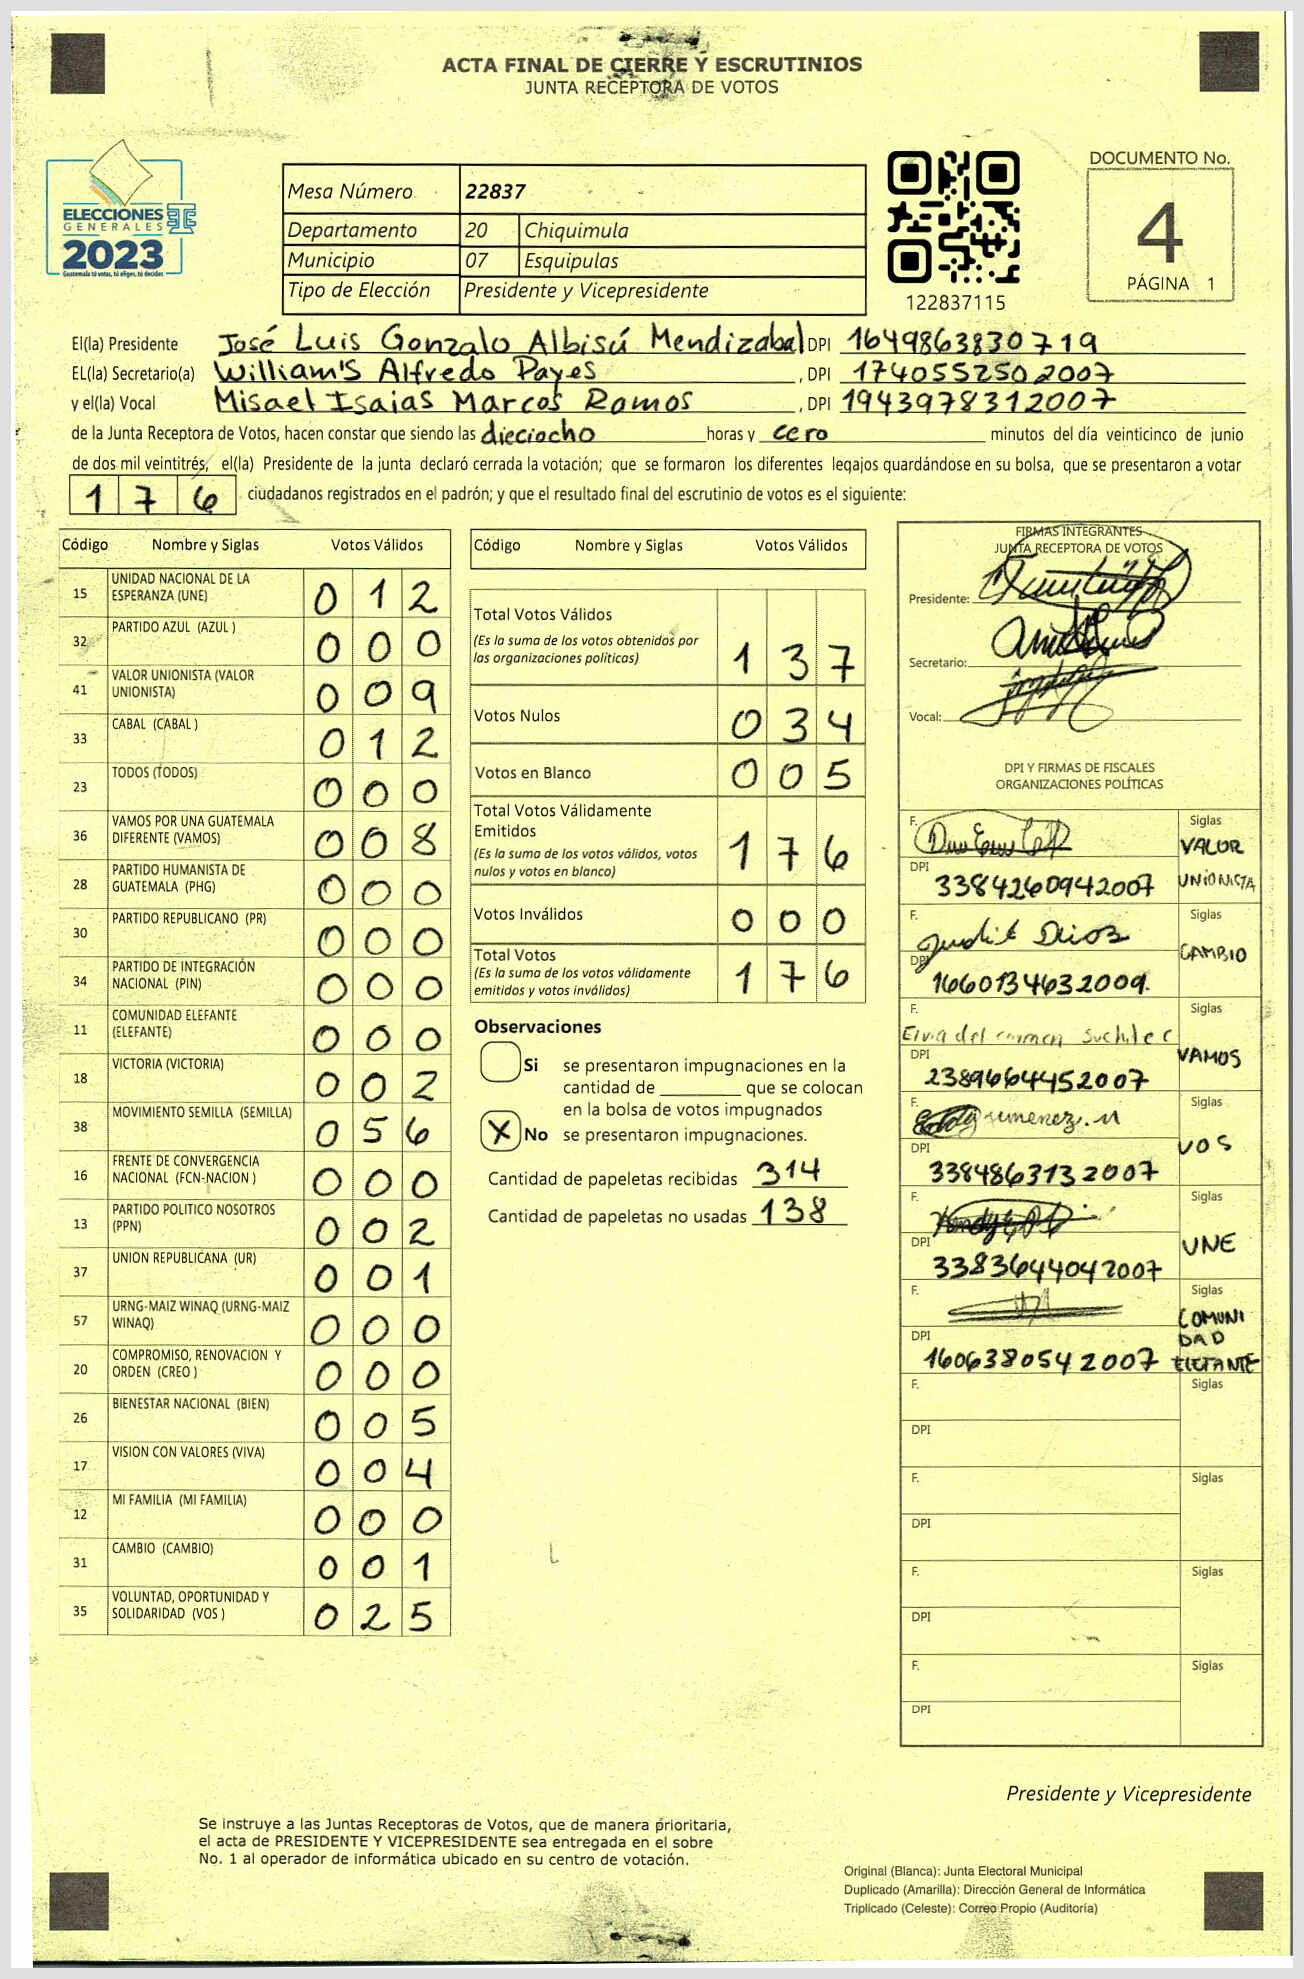 ACTA FINAL DE CIERRE Y ESCRUTINIOS
JUNTA RECEPTORA DE VOTOS
ELECCIONES
GENERALES
2023
Guatemala tú votas, tú eliges, tú decides
Mesa Número 22837
Departamento 20 Chiquimula
Municipio 07 Esquipulas
Tipo de Elección Presidente y Vicepresidente
122837115
DOCUMENTO No.
4
PÁGINA 1
El(la) Presidente José Luis Gonzalo Albisú Mendizabal DPI 1649863830719
EL(la) Secretario(a) William'S Alfredo Payes , DPI 1740552502007
y el(la) Vocal Misael Isaias Marcos Ramos , DPI 1943978312007
de la Junta Receptora de Votos, hacen constar que siendo las dieciocho horas y cero minutos del día veinticinco de junio
de dos mil veintitrés, el(la) Presidente de la junta declaró cerrada la votación; que se formaron los diferentes legajos guardándose en su bolsa, que se presentaron a votar
176 ciudadanos registrados en el padrón; y que el resultado final del escrutinio de votos es el siguiente:
Código Nombre y Siglas Votos Válidos
15 UNIDAD NACIONAL DE LA ESPERANZA (UNE) 012
32 PARTIDO AZUL (AZUL ) 000
41 VALOR UNIONISTA (VALOR UNIONISTA) 009
33 CABAL (CABAL ) 012
23 TODOS (TODOS) 000
36 VAMOS POR UNA GUATEMALA DIFERENTE (VAMOS) 008
28 PARTIDO HUMANISTA DE GUATEMALA (PHG) 000
30 PARTIDO REPUBLICANO (PR) 000
34 PARTIDO DE INTEGRACIÓN NACIONAL (PIN) 000
11 COMUNIDAD ELEFANTE (ELEFANTE) 000
18 VICTORIA (VICTORIA) 002
38 MOVIMIENTO SEMILLA (SEMILLA) 056
16 FRENTE DE CONVERGENCIA NACIONAL (FCN-NACION ) 000
13 PARTIDO POLITICO NOSOTROS (PPN) 002
37 UNION REPUBLICANA (UR) 001
57 URNG-MAIZ WINAQ (URNG-MAIZ WINAQ) 000
20 COMPROMISO, RENOVACION Y ORDEN (CREO ) 000
26 BIENESTAR NACIONAL (BIEN) 005
17 VISION CON VALORES (VIVA) 004
12 MI FAMILIA (MI FAMILIA) 000
31 CAMBIO (CAMBIO) 001
35 VOLUNTAD, OPORTUNIDAD Y SOLIDARIDAD (VOS ) 025
Código Nombre y Siglas Votos Válidos
Total Votos Válidos
(Es la suma de los votos obtenidos por
las organizaciones políticas) 137
Votos Nulos 034
Votos en Blanco 005
Total Votos Válidamente
Emitidos
(Es la suma de los votos válidos, votos
nulos y votos en blanco) 176
Votos Inválidos 000
Total Votos
(Es la suma de los votos válidamente
emitidos y votos inválidos) 176
Observaciones
Si se presentaron impugnaciones en la
cantidad de ________ que se colocan
en la bolsa de votos impugnados
X No se presentaron impugnaciones.
Cantidad de papeletas recibidas 314
Cantidad de papeletas no usadas 138
FIRMAS INTEGRANTES
JUNTA RECEPTORA DE VOTOS
Presidente:
Secretario:
Vocal:
DPI Y FIRMAS DE FISCALES
ORGANIZACIONES POLÍTICAS
F. Siglas
VALOR
UNIONISTA
DPI 3384260942007
F. Judit Siglas
CAMBIO
DPI 1660134632009
F. Elvia del carmen Suchite C Siglas
VAMOS
DPI 2389664452007
F. Jimenez. M Siglas
VOS
DPI 3384863132007
F. Siglas
UNE
DPI 3383644042007
F. Siglas
COMUNI
DAD
ELEFANTE
DPI 1606380542007
F. Siglas
DPI
F. Siglas
DPI
F. Siglas
DPI
F. Siglas
DPI
Presidente y Vicepresidente
Se instruye a las Juntas Receptoras de Votos, que de manera prioritaria,
el acta de PRESIDENTE Y VICEPRESIDENTE sea entregada en el sobre
No. 1 al operador de informática ubicado en su centro de votación.
Original (Blanca): Junta Electoral Municipal
Duplicado (Amarilla): Dirección General de Informática
Triplicado (Celeste): Correo Propio (Auditoría)